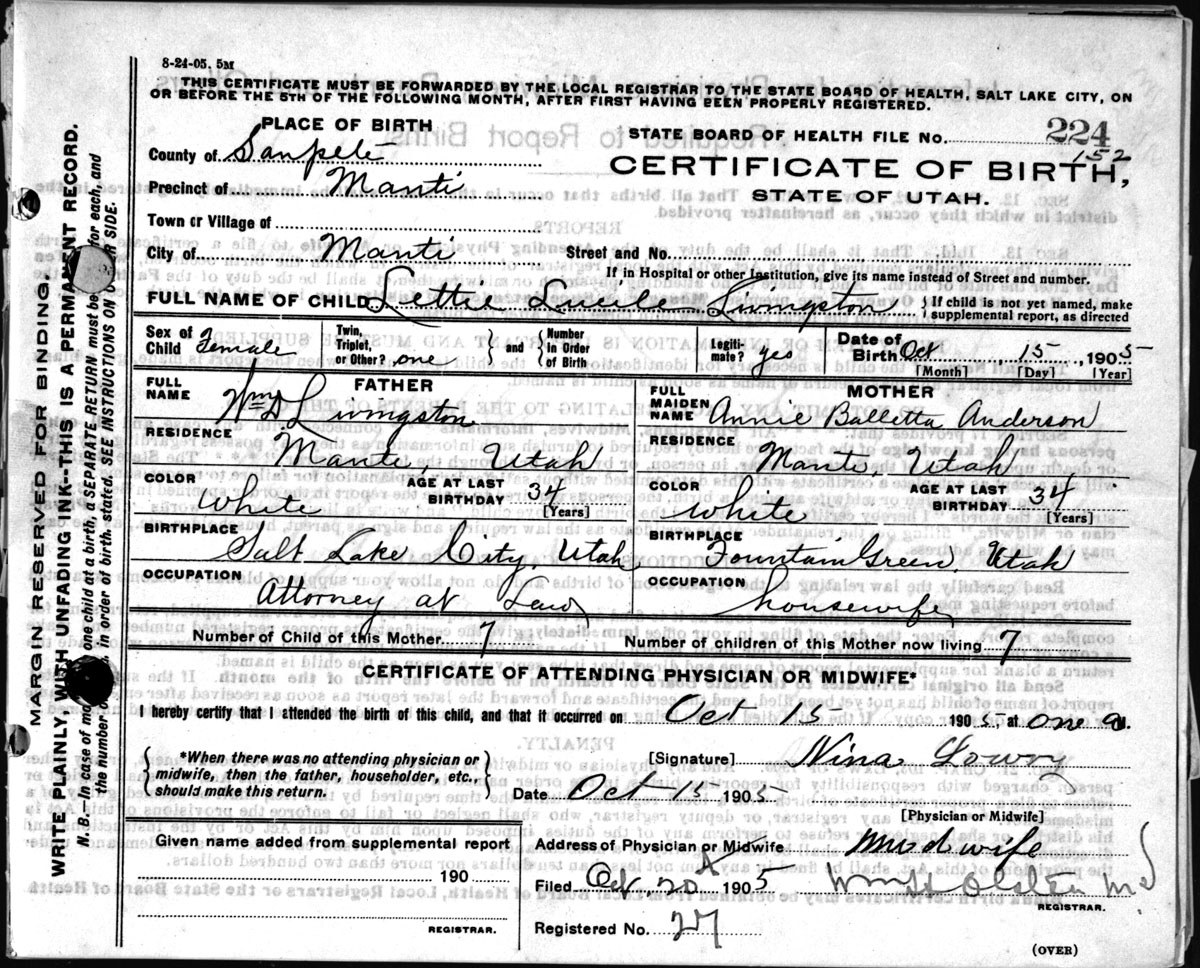 8-24-05. 5M
THIS CERTIFICATE MUST BE FORWARDED BY THE LOCAL REGISTRAR TO THE STATE BOARD OF HEALTH, SALT LAKE CITY, ON
OR BEFORE THE 5TH OF THE FOLLOWING MONTH, AFTER FIRST HAVING BEEN PROPERLY REGISTERED.
PLACE OF BIRTH
STATE BOARD OF HEALTH FILE No. 224
152
County of Sanpete
CERTIFICATE OF BIRTH,
Precinct of Manti
STATE OF UTAH.
Town or Village of
City of Manti Street and No.
If in Hospital or other Institution, give its name instead of Street and number.
FULL NAME OF CHILD Lettie Lucile Livingston { If child is not yet named, make supplemental report, as directed
Sex of Child Female Twin, Triplet, or Other? one } and { Number in Order of Birth Legiti-mate? yes Date of Birth Oct 15, 1905
[Month] [Day] [Year]
FATHER
FULL NAME Wm D Livingston
RESIDENCE
Manti, Utah
COLOR White AGE AT LAST BIRTHDAY 34
[Years]
BIRTHPLACE
Salt Lake City, Utah
OCCUPATION
Attorney at Law
MOTHER
FULL MAIDEN NAME Annie Balletta Anderson
RESIDENCE
Manti, Utah
COLOR White AGE AT LAST BIRTHDAY 34
[Years]
BIRTHPLACE
Fountain Green, Utah
OCCUPATION
housewife
Number of Child of this Mother 7 Number of children of this Mother now living 7
CERTIFICATE OF ATTENDING PHYSICIAN OR MIDWIFE*
I hereby certify that I attended the birth of this child, and that it occurred on Oct 15 1905, at one a.
{ *When there was no attending physician or
midwife, then the father, householder, etc.,
should make this return. }
[Signature] Nina Lowry
Date Oct 15 1905
[Physician or Midwife]
Given name added from supplemental report
190
REGISTRAR.
Address of Physician or Midwife Midwife
Filed Oct, 20 1905 Wm H Olsten Md
REGISTRAR.
Registered No. 27
(OVER)
MARGIN RESERVED FOR BINDING.
WRITE PLAINLY, WITH UNFADING INK--THIS IS A PERMANENT RECORD.
N. B.—In case of more one child at a birth, a SEPARATE RETURN must be for each, and
the number in order of birth, stated. SEE INSTRUCTIONS ON SIDE.